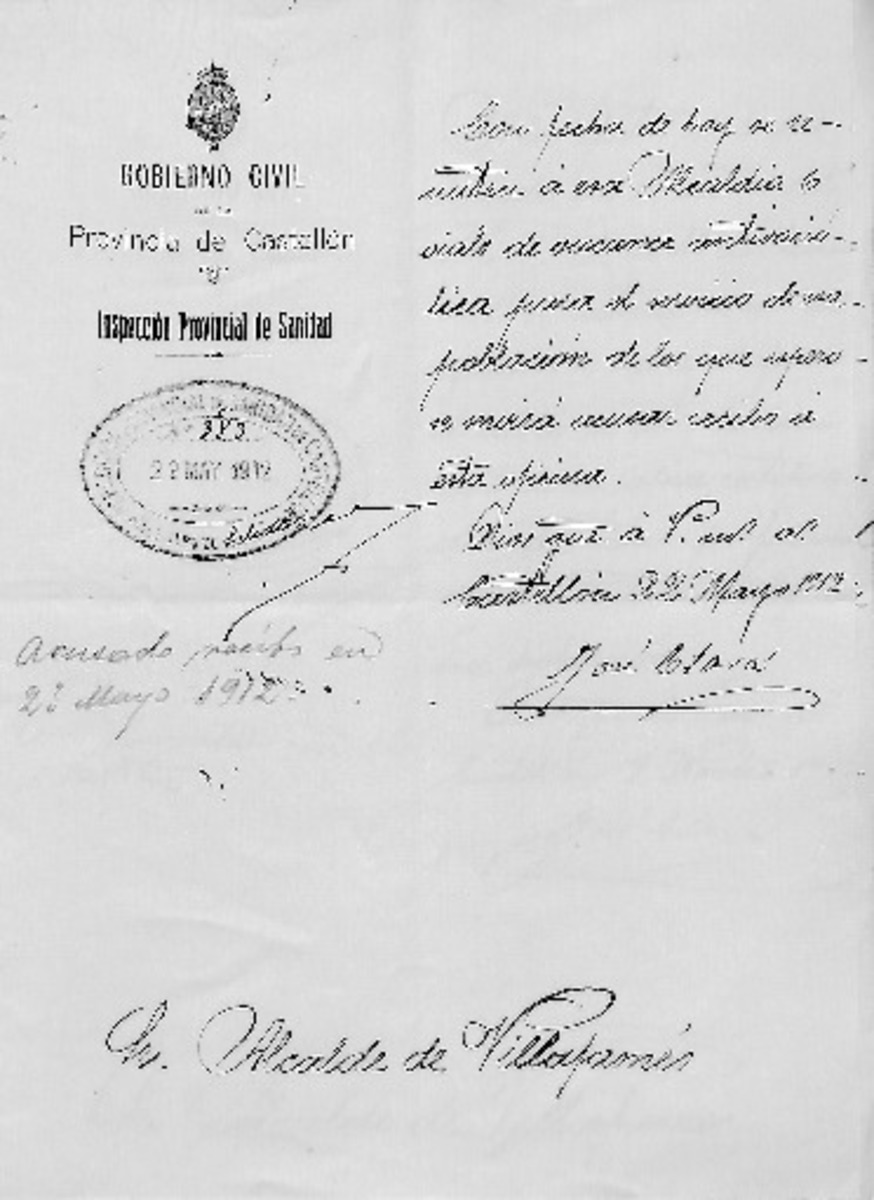 GOBIERNO CIVIL
DE LA
Provincia de Castellón
Inspección Provincial de Sanidad
22 MAY 1912
Con fecha de hoy se re-
miten á esa Alcaldía 6
vials de vacuna antivarió-
lica para el servicio de esa
población de los que espero
se servirá acusar recibo á
esta oficina.
Dios gue á V. ms as
Castellón 22 Mayo 1912
José Clará
Acusado recibo en
23 Mayo 1912
Sr. Alcalde de Villafamés